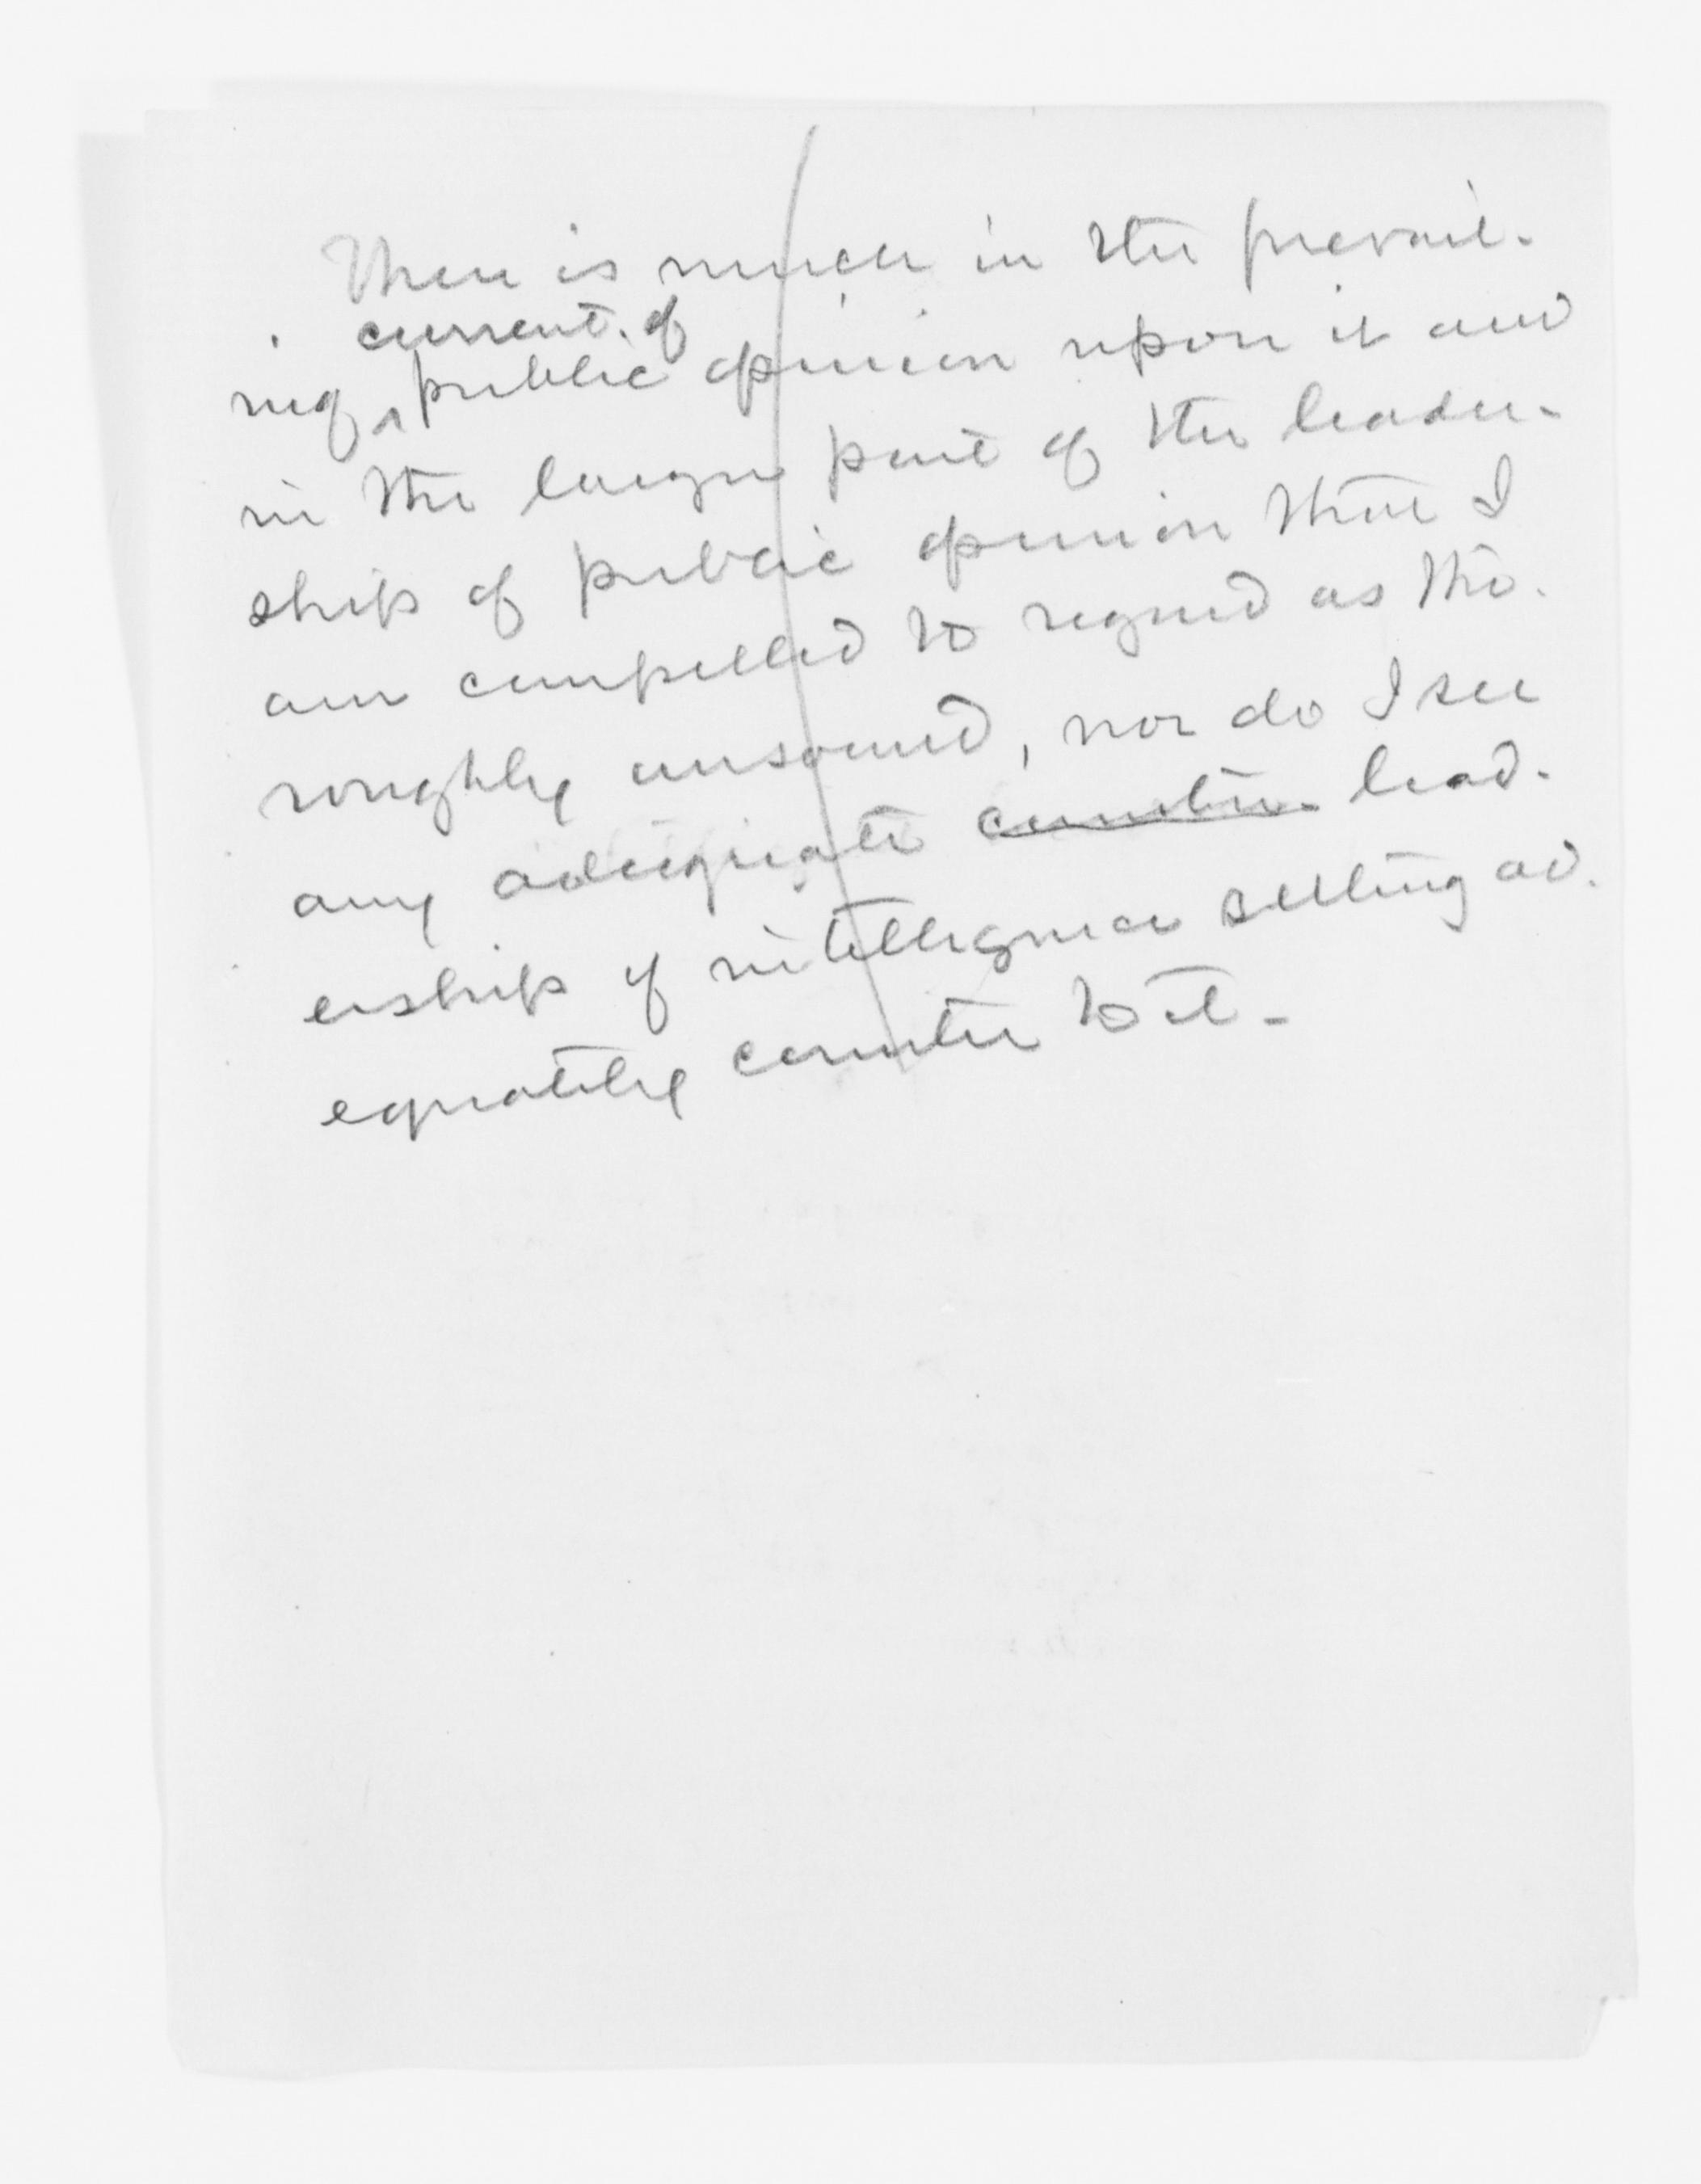 There is much in the prevail-
current of
ing ^ public opinion upon it and
in the larger part of the leader-
ship of public opinion that I
am compelled to regard as tho-
roughly unsound, nor do I see
any adequate counter- lead-
ership of intelligence setting ad-
equately counter to it -